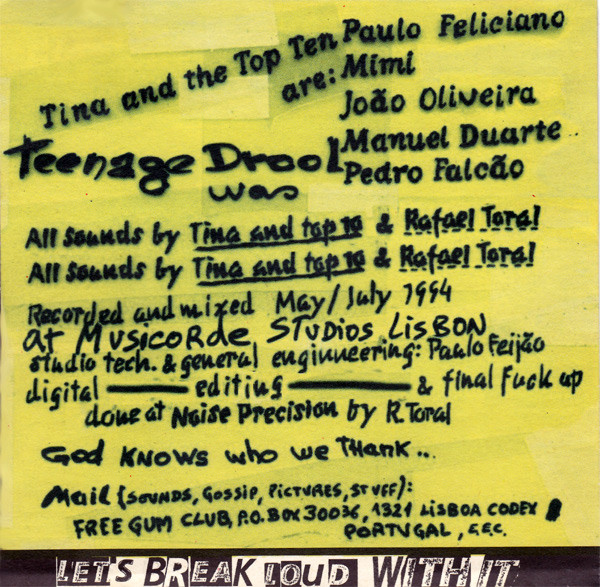 Tina and the Top Ten
are:
Paulo Feliciano
Mimi
João Oliveira
Manuel Duarte
Pedro Falcão
Teenage Drool
was
All sounds by Tina and top 10 & Rafael Toral
All sounds by Tina and top 10 & Rafael Toral
Recorded and mixed May/July 1994
at MUSICORDE STUDIOS LISBON
studio tech. & general enginneering: Paulo Feijão
digital editing & final fuck up
done at Noise Precision by R. Toral
God KNOWS who we THANK...
Mail (SOUNDS, GOSSIP, PICTURES, STUFF):
FREE GUM CLUB, P.O. BOX 30036, 1321 LISBOA CODEX
PORTUGAL, E.E.C.
LET'S BREAK LOUD WITH IT